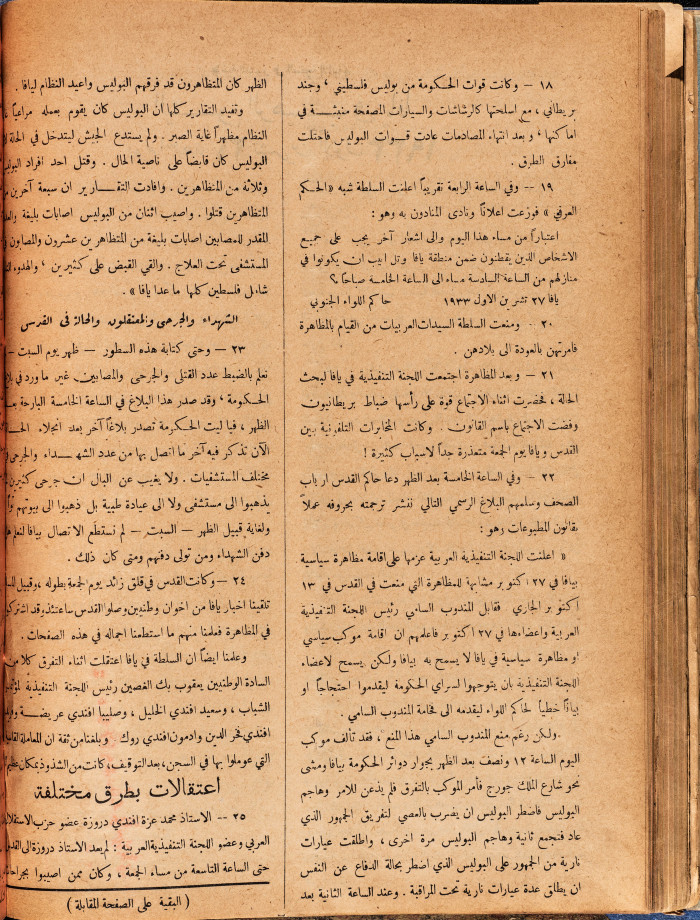 ١٨ – وكانت قوات الحكومة من بوليس فلسطيني ، وجند
بريطاني ، مع اسلحتها كالرشاشات والسيارات المصفحة منبثة في
اماكنها ، وبعد انتهاء المصادمات عادت قوات البوليس فاحتلت
مفارق الطرق .
١٩ -- وفي الساعة الرابعة تقريباً اعلنت السلطة شبه « الحكم
العرفي » فوزعت اعلاناً ونادى المنادون به وهو :
اعتباراً من مساء هذا اليوم والى اشعار آخر يجب على جميع
الاشخاص الذين يقطنون ضمن منطقة يافا وتل ابيب ان يكونوا في
منازلهم من الساعة السادسة مساء الى الساعة الخامسة صباحاً ؟
يافا ٢٧ تشرين الاول ١٩٣٣ حاكم اللواء الجنوبي
٢٠ – ومنعت السلطة السيدات العربيات من القيام بالمظاهرة
فامرتهن بالعودة الى بلادهن .
٢١ – وبعد المظاهرة اجتمعت اللجنة التنفيذية في يافا لبحث
الحالة ، فحضرت اثناء الاجتماع قوة على رأسها ضباط بريطانيون
وفضت الاجتماع باسم القانون . وكانت المخابرات التلفونية بين
القدس ويافا يوم الجمعة متعذرة جداً لاسباب كثيرة !
٢٢ – وفي الساعة الخامسة بعد الظهر دعا حاكم القدس ارباب
الصحف وسلمهم البلاغ الرسمي التالي ننشر ترجمته بحروفه عملاً
بقانون المطبوعات وهو :
« اعلنت اللجنة التنفيذية العربية عزمها على اقامة مظاهرة سياسية
بيافا في ٢٧ اكتوبر مشابهة للمظاهرة التي منعت في القدس في ١٣
اكتوبر الجاري . فقابل المندوب السامي رئيس اللجنة التنفيذية
العربية واعضاءها في ٢٧ اكتوبر فاعلمهم ان اقامة موكب سياسي
او مظاهرة سياسية في يافا لا يسمح به بيافا ولكن يسمح لاعضاء
اللجنة التنفيذية بان يتوجهوا لسراي الحكومة ليقدموا احتجاجاً او
بياناً خطياً لحاكم اللواء ليقدمه الى فخامة المندوب السامي .
ولكن رغم منع المندوب السامي هذا المنع ، فقد تألف موكب
اليوم الساعة ١٢ ونصف بعد الظهر بجوار دوائر الحكومة بيافا ومشى
نحو شارع الملك جورج فأمر الموكب بالتفرق فلم يذعن للامر وهاجم
البوليس فاضطر البوليس ان يضرب بالعصي لتفريق الجمهور الذي
عاد فتجمع ثانية وهاجم البوليس مرة اخرى ، واطلقت عيارات
نارية من الجمهور على البوليس الذي اضطر بحالة الدفاع عن النفس
ان يطلق عدة عيارات نارية تحت المراقبة . وعند الساعة الثانية بعد
الظهر كان المتظاهرون قد فرقهم البوليس واعيد النظام ليافا .
وتفيد التقارير كلها ان البوليس كان يقوم بعمله مراعياً
النظام مظهراً غاية الصبر . ولم يستدع الجيش ليتدخل في الحالة
البوليس كان قابضاً على ناصية الحال . وقتل احد افراد
وثلاثة من المتظاهرين . وافادت التقارير ان سبعة آخرين
المتظاهرين قتلوا . واصيب اثنان من البوليس اصابات بليغة
المقدر للمصابين اصابات بليغة من المتظاهرين عشرون والمصابون
المستشفى تحت العلاج . والقي القبض على كثيرين ، والهدوء
شامل فلسطين كلها ما عدا يافا » .
الشهداء والجرحى والمعتقلون والحالة في القدس
٢٣ – وحتى كتابة هذه السطور – ظهر يوم السبت –
نعلم بالضبط عدد القتلى والجرحى والمصابين غير ما ورد في
الحكومة ، وقد صدر هذا البلاغ في الساعة الخامسة البارحة
الظهر ، فيا ليت الحكومة تصدر بلاغاً آخر بعد انجلاء
الآن تذكر فيه آخر ما اتصل بها من عدد الشهداء والجرحى
مختلف المستشفيات . ولا يغيب عن البال ان جرحى كثيرين
يذهبوا الى مستشفى ولا الى عيادة طبية بل ذهبوا الى بيوتهم
ولغاية قبيل الظهر – السبت – لم نستطع الاتصال بيافا لنعلم
دفن الشهداء ومن تولى دفنهم ومتى كان ذلك .
٢٤ – وكانت القدس في قلق زائد يوم الجمعة بطوله ، وقبيل
تلقينا اخبار يافا من اخوان وطنيين وصلوا القدس ساعتئذ وقد اشتركوا
في المظاهرة فعلمنا منهم ما استطعنا اجماله في هذه الصفحات .
وعلمنا ايضاً ان السلطة في يافا اعتقلت اثناء التفرق كلا من
السادة الوطنيين يعقوب بك الغصين رئيس اللجنة التنفيذية لمؤتمر
الشباب ، وسعيد افندي الخليل ، وصليبا افندي عريضة
افندي فخر الدين وادمون افندي روك . وبلغنا من ثقة ان المعاملة
التي عوملوا بها في السجن ، بعد التوقيف ، كانت من الشذوذ بمكان
اعتقالات بطرق مختلفة
٢٥ -- الاستاذ محمد عزة افندي دروزة عضو حزب الاستقلال
العربي وعضو اللجنة التنفيذية العربية : لم يعد الاستاذ دروزة الى القدس
حتى الساعة التاسعة من مساء الجمعة ، وكان ممن اصيبوا
( البقية على الصفحة المقابلة )